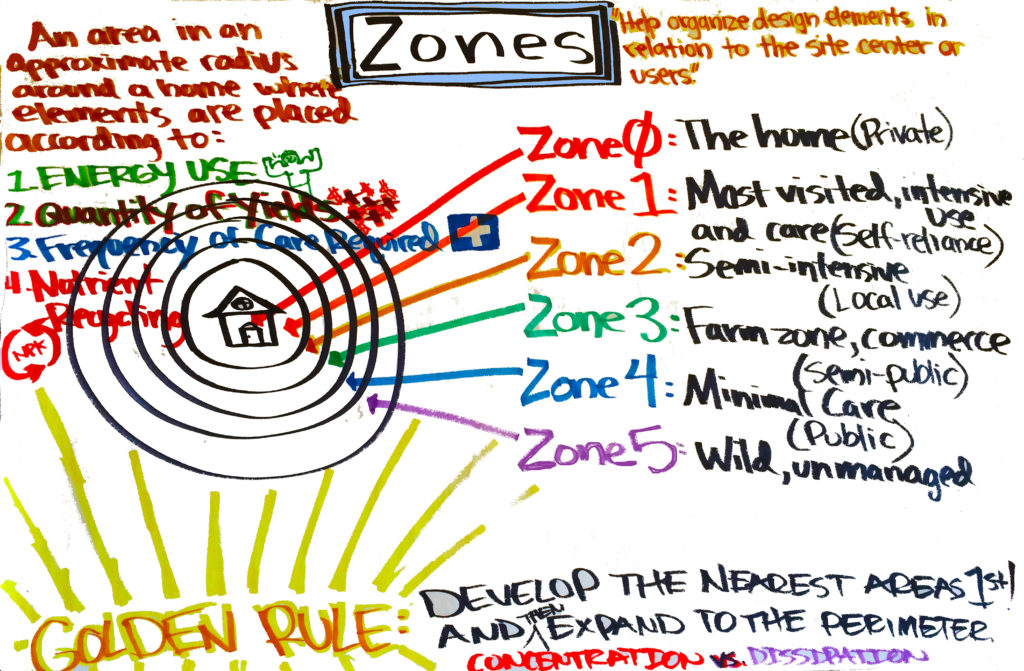 Zones
An area in an
approximate radius
around a home where
elements are placed
according to:
1. ENERGY USE
2. Quantity of Yields
3. Frequency of Care Required
4. Nutrient
Recycling
NPK
"Help organize design elements in
relation to the site center or
users."
Zone 0: The home (Private)
Zone 1: Most visited, intensive
use
and care (Self-reliance)
Zone 2: Semi-intensive
(Local use)
Zone 3: Farm zone, commerce
(Semi-public)
Zone 4: Minimal Care
(Public)
Zone 5: Wild, unmanaged
GOLDEN RULE:
DEVELOP THE NEAREST AREAS 1st!
AND THEN EXPAND TO THE PERIMETER.
CONCENTRATION vs. DISSIPATION